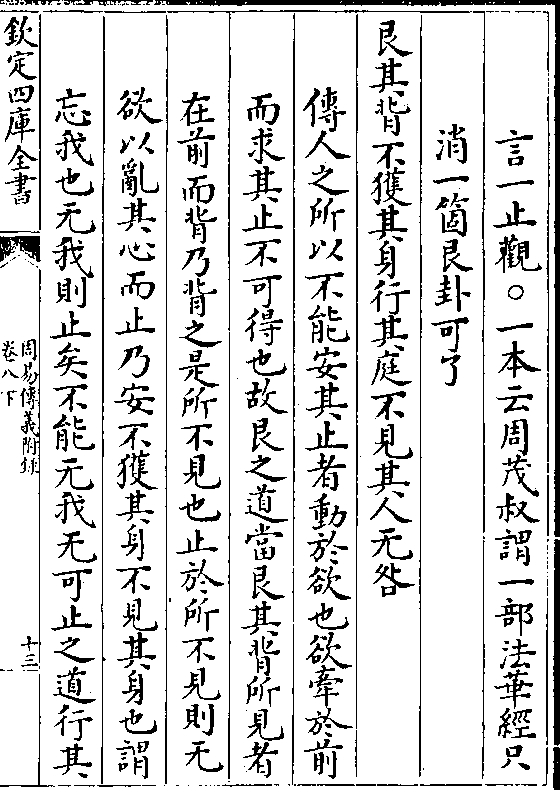 言一止觀○一本云周茂叔謂一部法華經只
消一箇艮卦可了
艮其背不獲其身行其庭不見其人无咎
傳人之所以不能安其止者動於欲也欲牽於前
而求其止不可得也故艮之道當艮其背所見者
在前而背乃背之是所不見也止於所不見則无
欲以亂其心而止乃安不獲其身不見其身也謂
忘我也无我則止矣不能无我无可止之道行其
欽定四庫全書
周易傳義附錄
卷八下
十三